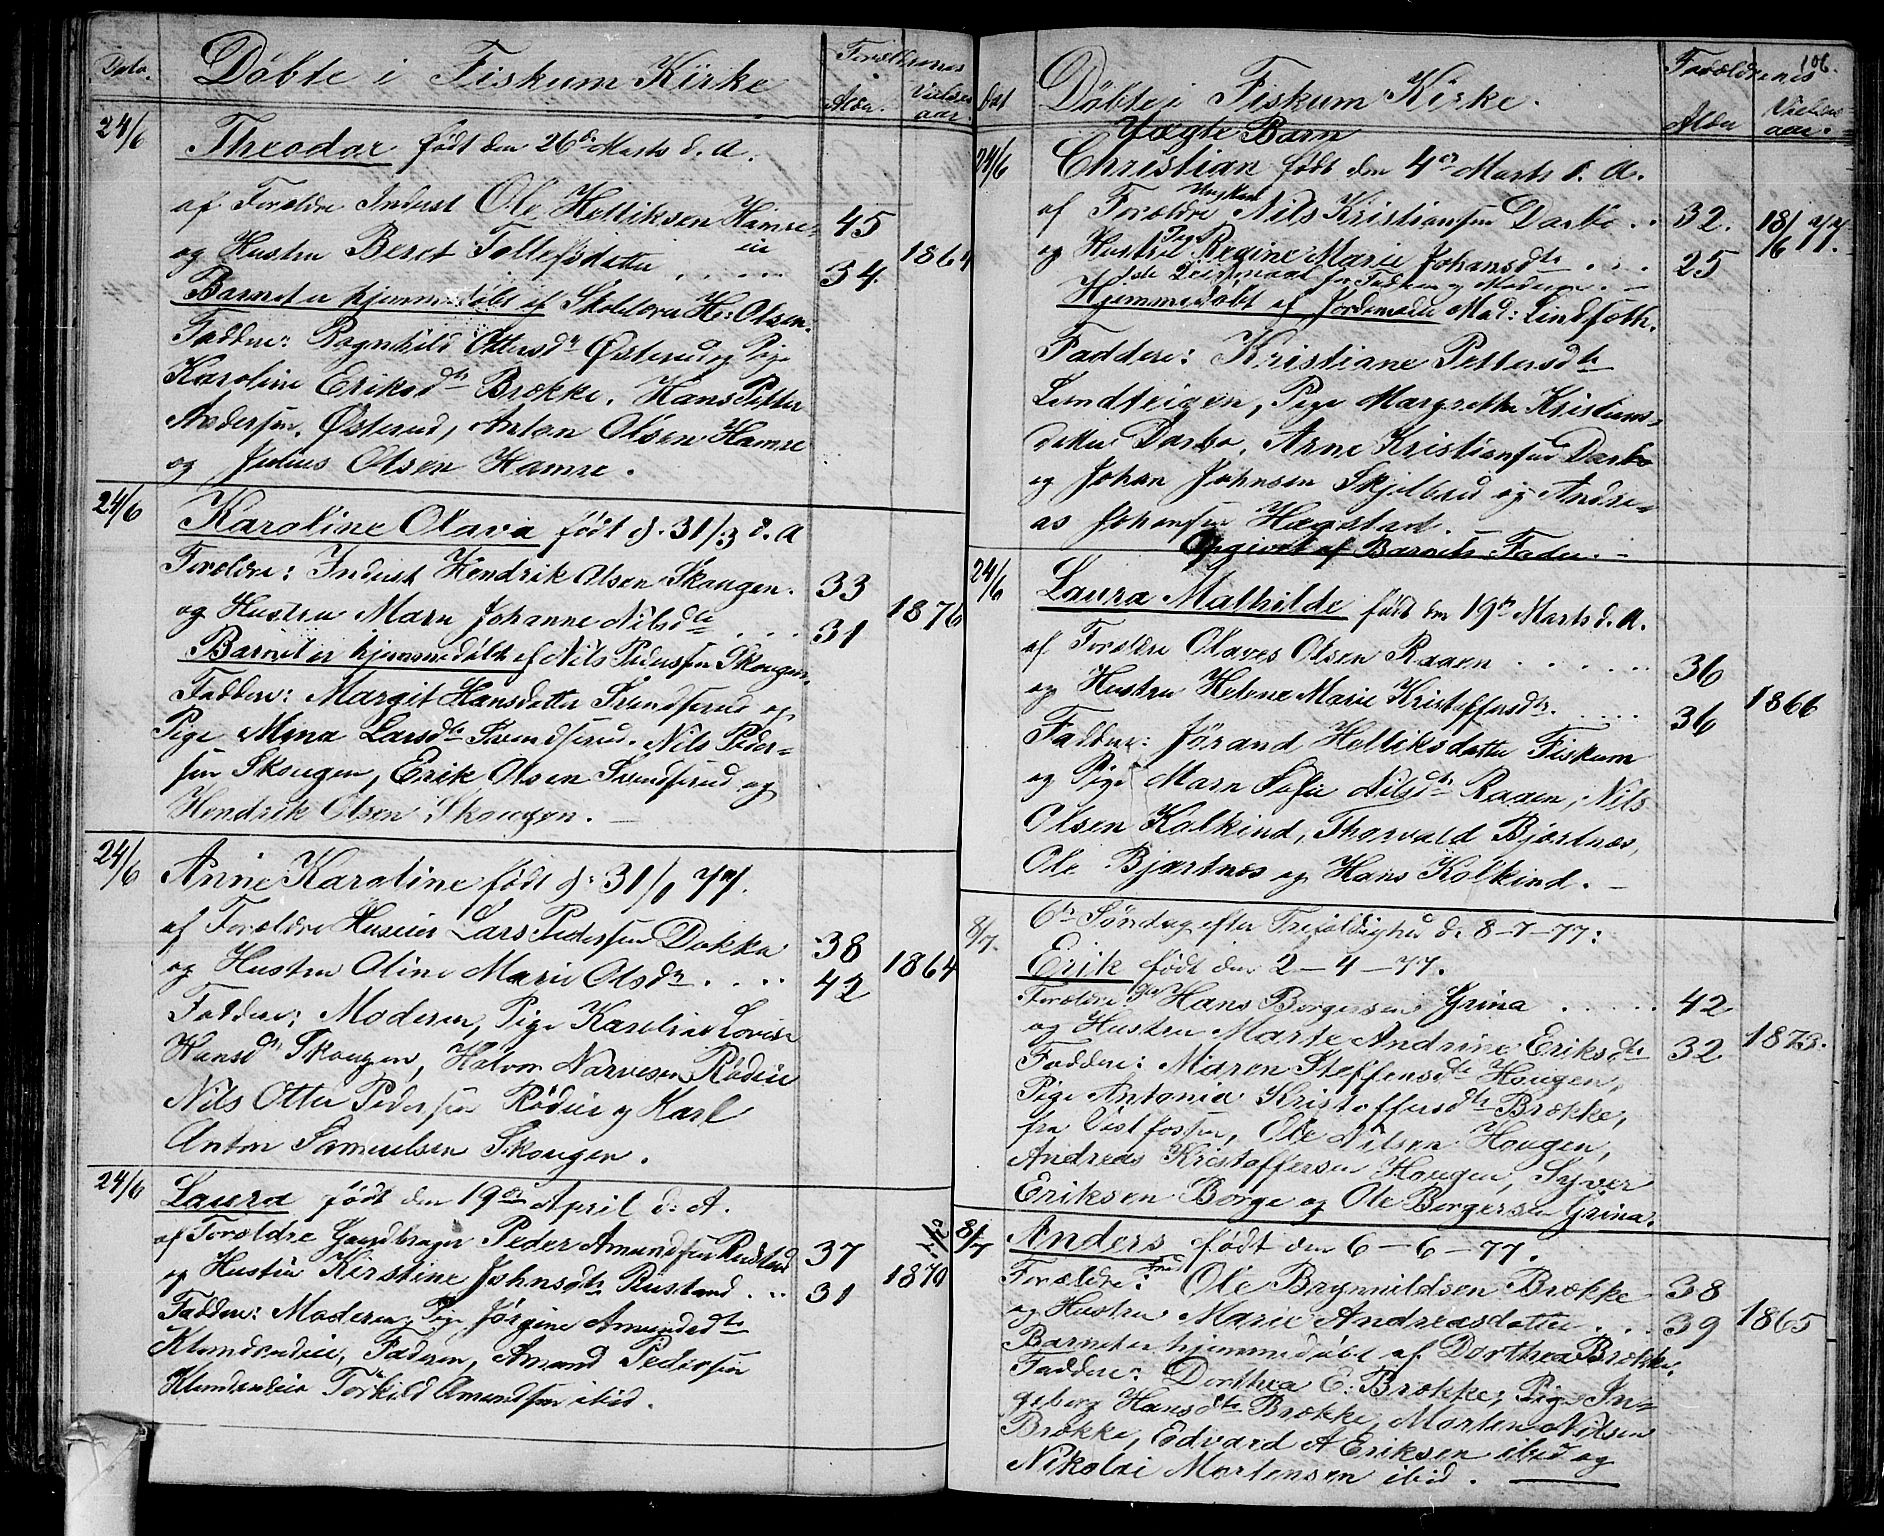 Dato.
Døbte i Fiskum Kirke
Forældrenes
Alder.
Vielses
aar.
24/6
Theodor født den 26de Marts d. A.
af Forældre Inderst Ole Helliksen Hamre-
eie
45
og Hustru Beret Tollefsdatter . . . . .
34.
1864
Barnet er hjemmedøbt af Skolelærer H. Olsen.
Faddere: Ragnhild Ottersdr Østerud og Pige
Karoline Eriksdtr Brække. Hans Petter
Andersen Østerud, Anton Olsen Hamre
og Julius Olsen Hamre.
24/6
Karoline Olava født d. 31/3 d. A
Forældre: Inderst Hendrik Olsen Skougen.
33
og Hustru Maren Johanne Nilsdtr . . .
31
1876
Barnet er hjemmedøbt af Nils Pedersen Skougen.
Faddere: Margit Hansdatter Svendserud og
Pige Mina Larsdtr Svendserud. Nils Peder-
sen Skougen, Erik Olsen Svendserud og
Hendrik Olsen Skougen. –
24/6
Anne Karoline født d. 31/1 77.
af Forældre Huseier Lars Pedersen Dokka
38
og Hustru Oline Marie Olsdr . . . .
42
1864
Faddere: Moderen, Pige Karoline Lovise
Hansdtr Skougen, Halvor Narvesen Rødeie
Nils Otter Pedersen Rødeie og Karl
Anton Samuelsen Skougen.
24/6
Laura født den 19de April d. A.
af Forældre Gaardbruger Peder Amundsen Rustand
37
og Hustru Kirstine Johnsdtr Rustand . . .
31
1870
Faddere: Moderen, Pige Jørgine Amundsdtr
Klunderudeie, Faderen, Amund Pedersen
Klunderudeie Torkild Amundsen ibid.
106.
Dat
Døbte i Fiskum Kirke.
Forældrenes
Alder
Vielses
aar.
Uægte Barn
24/6
Christian født den 4de Marts d. A.
af Forældre Ungkarl Nils Kristiansen Darbo . .
32.
18/6 77.
og Hustru Pige Regine Marie Johansdtr . . . .
25
1ste Leiermaal for Faderen og Moderen. –
Hjemmedøbt af Jordemoder Mad: Lindfoth.
Faddere: Kristiane Pettersdtr
Lundteigen, Pige Margrethe Kristians-
datter Darbo, Arne Kristiansen Darbo
og Johan Johnsen Skjelbred og Andre-
as Johansen Hægstad.
Opgivet af Barnets Fader. –
24/6
Laura Mathilde født den 19de Marts d. A.
af Forældre Olaves Olsen Raaen . . . . .
36
og Hustru Helene Marie Kristoffersdtr. . . . .
36
1866
Faddere: Jørand Helliksdatter Fiskum
og Pige Maren Sofie Nilsdtr Raaen, Nils
Olsen Kolkind, Thorvald Bjørtnæs,
Ole Bjørtnæs og Hans Kolkind. –
8/7.
6te Søndag efter Trefoldighed d. 8-7-77:
Erik født den 2-4-77.
Forældre Hans Borgersen Grina . . . . .
42
og Hustru Marte Andrine Eriksdtr
32
1873.
Faddere: Maren Steffensdtr Hougen,
Pige Antonia Kristoffersdtr Brække,
fra Vestfossen, Ole Nilsen Hougen,
Andreas Kristoffersen Hougen, Syver
Eriksen Borge og Ole Borgersen Grina.
8/7
Anders født den 6-6-77.
Forældre: Ole Brynnildsen Brække
38
og Hustru Marie Andreasdatter . . .
39
1865
Barnet er hjemmedøbt af Dorthea Brække.
Faddere: Dorthea E. Brække, Pige In-
geborg Hansdtr Brække, Morten Nilsen
Brække, Edvard A Eriksen ibid og
Nikolai Mortensen ibid.